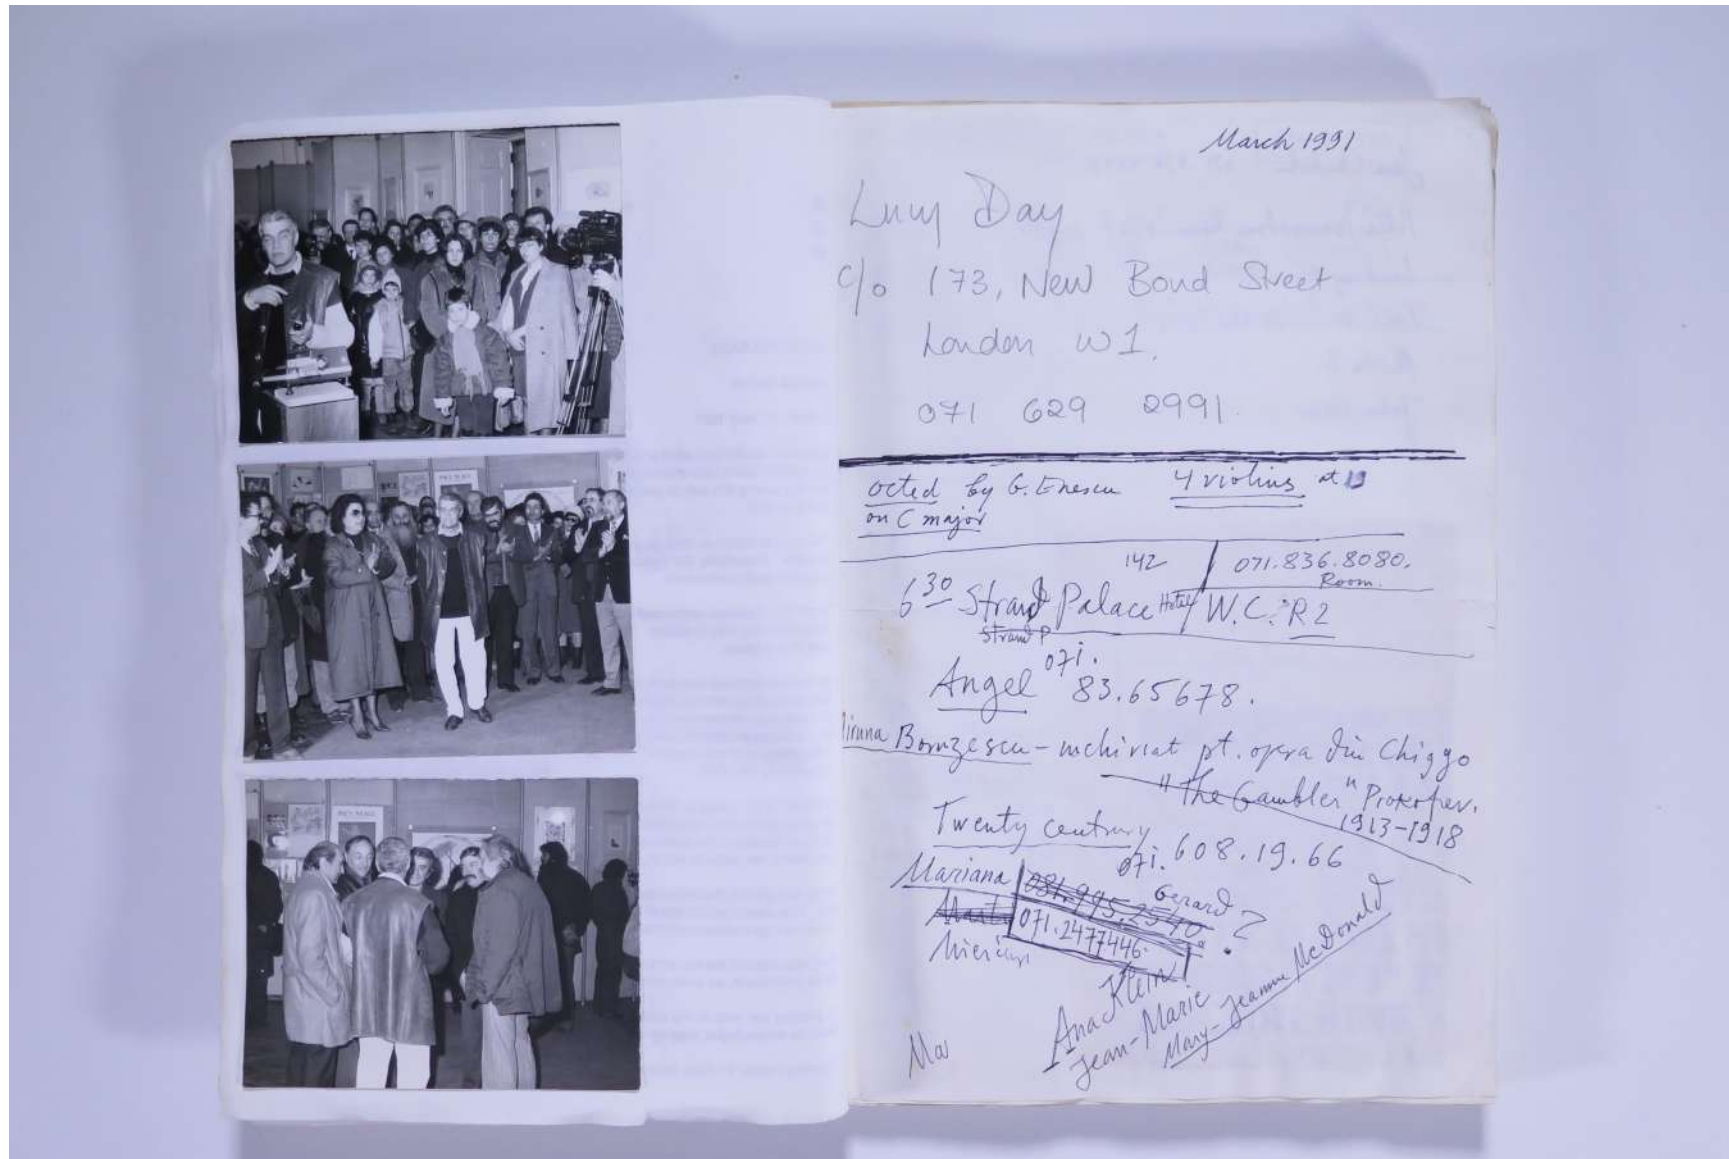 March 1991
Lucy Day
c/o 173, New Bond Street
London W1.
071 629 2991.
octed by G. Enescu 4 violins at
on C major
142 071.836.8080.
Room.
6 30 Strand Palace Hotel W.C. R2
Strand P
Angel 071.
83.65678.
pt. opera din Chiggo
"The Gambler" Prokofiev.
1913-1918
Twenty century
071.608.19.66
Mariana 081.995.2540
Gerard ?
071.2477446.
Ana Klein
Jean-Marie
Mary-Jeanne McDonald
Ma